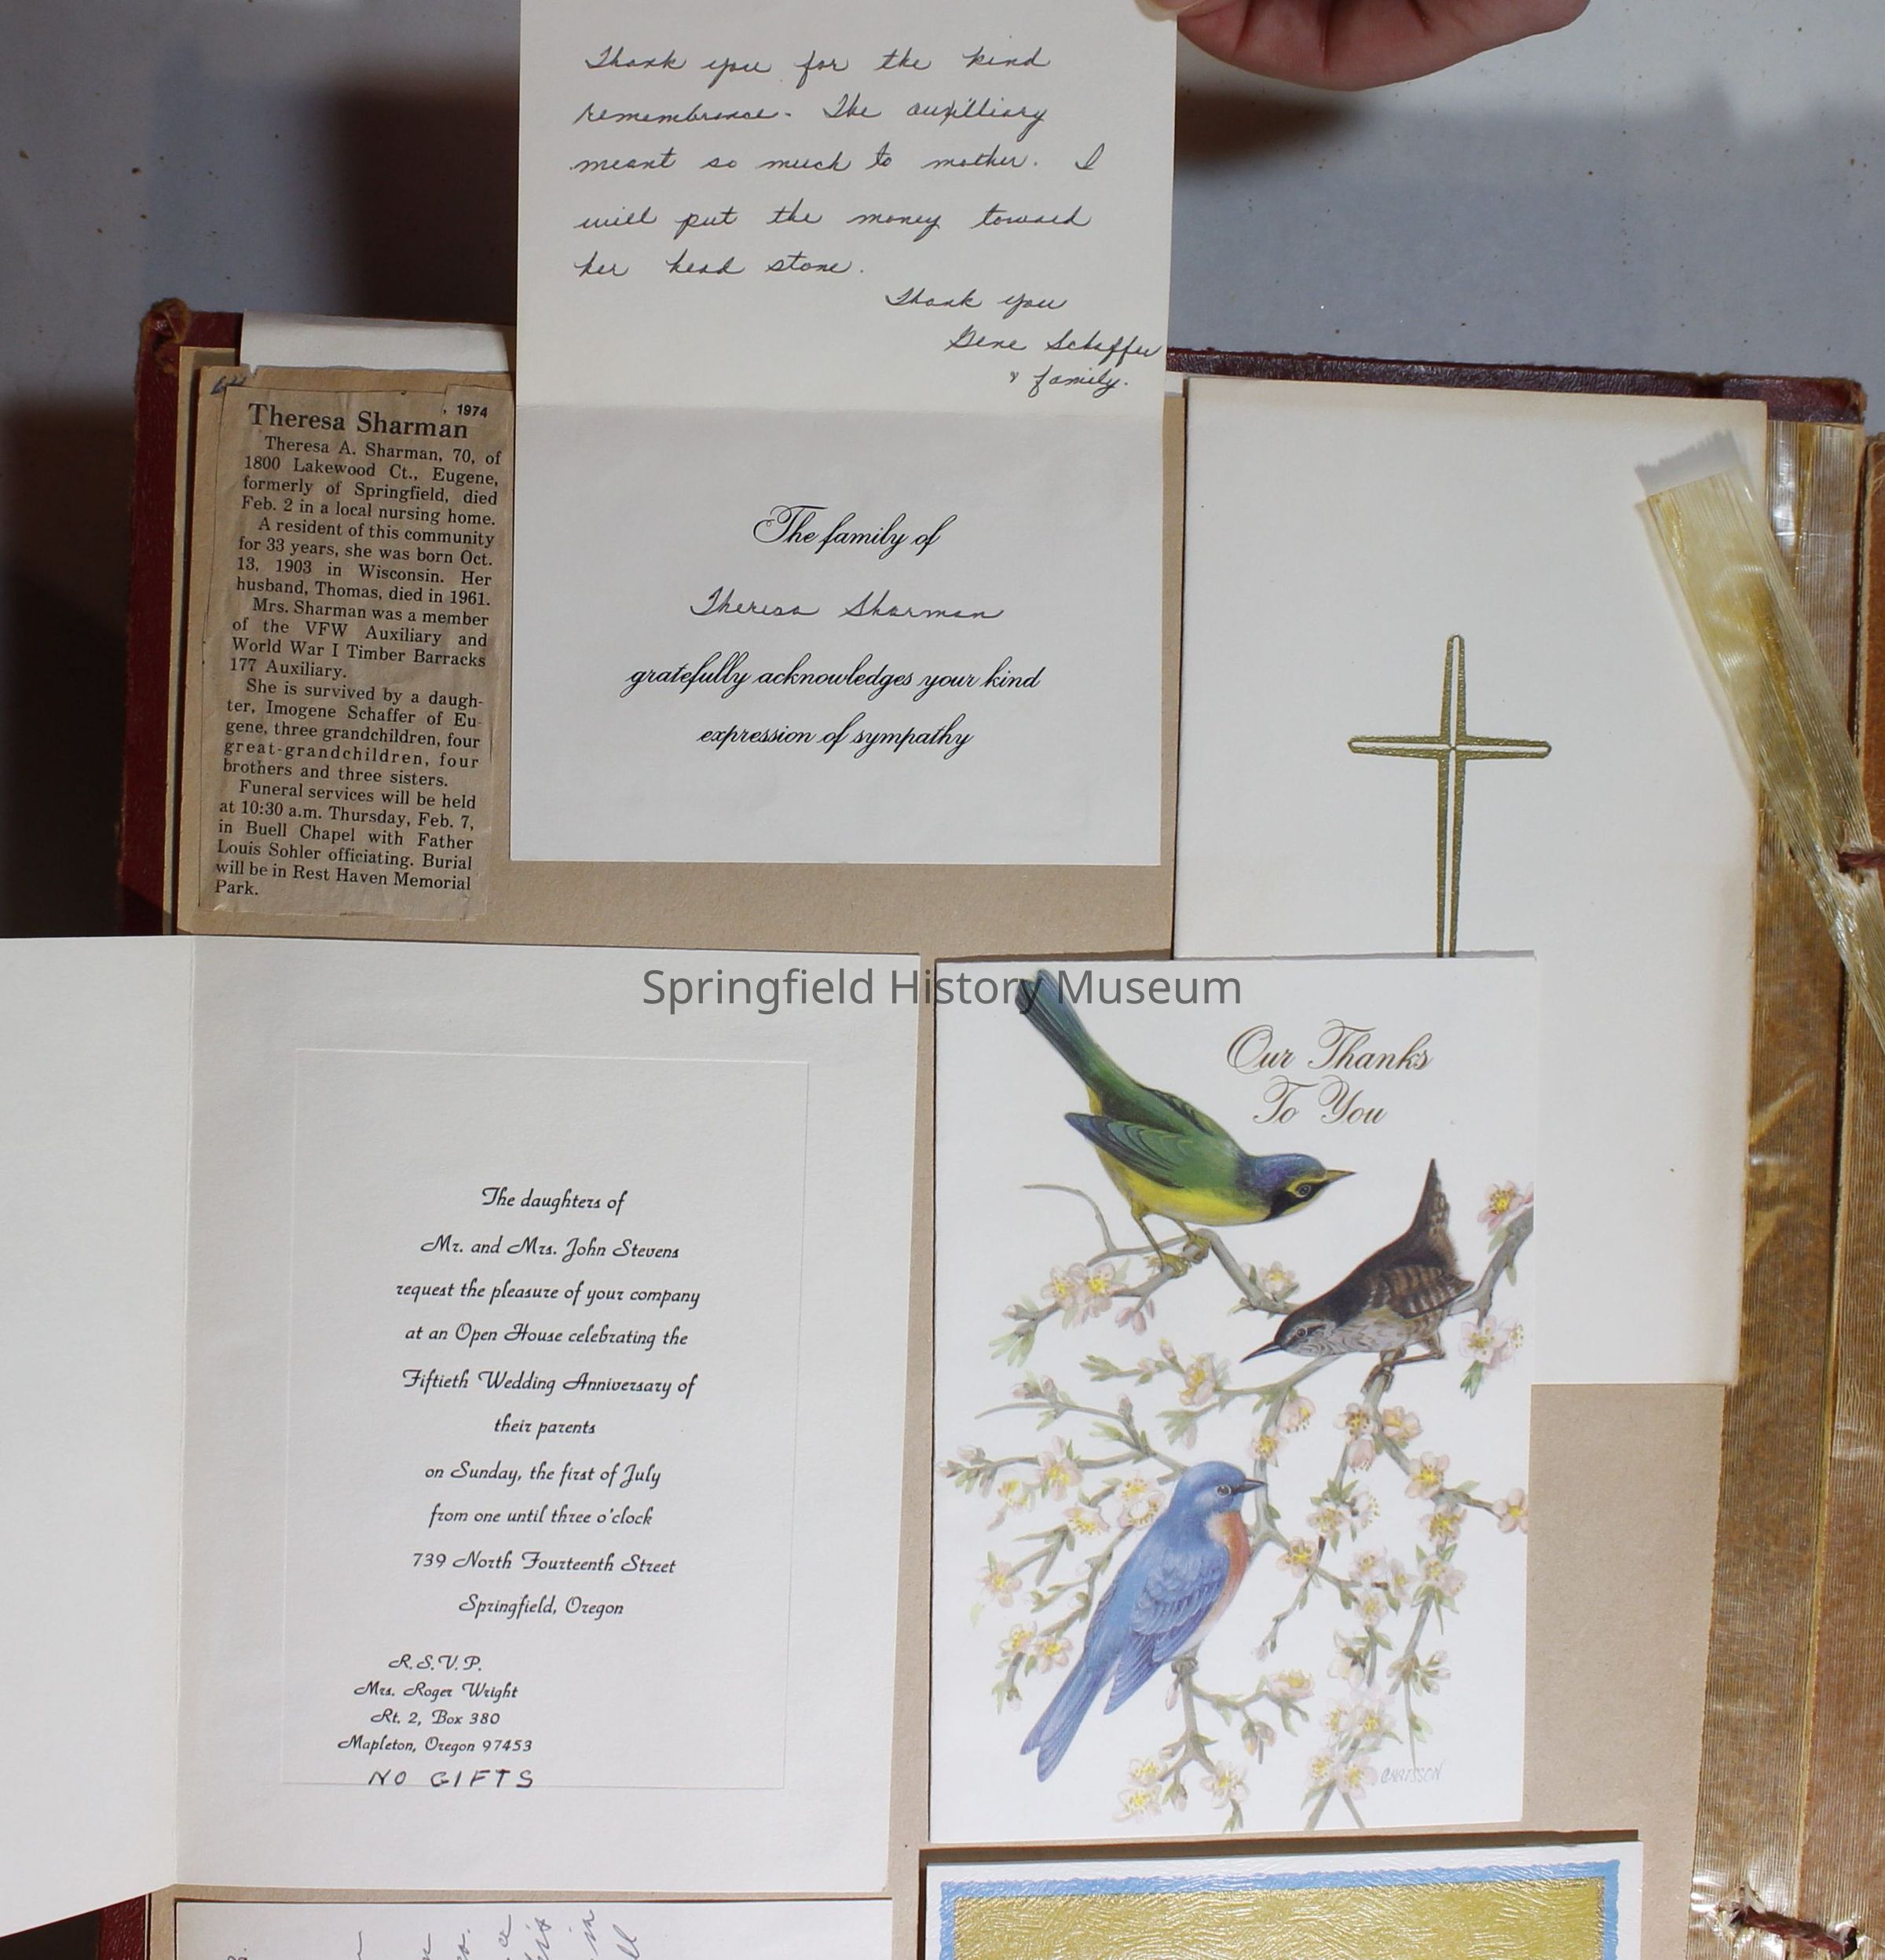 Thank you for the kind
remembrance. The auxilliary
meant so much to mother. I
will put the money toward
her head stone.
Thank you
Gene Schaffer
& family.
, 1974
Theresa Sharman
Theresa A. Sharman, 70, of
1800 Lakewood Ct., Eugene,
formerly of Springfield, died
Feb. 2 in a local nursing home.
A resident of this community
for 33 years, she was born Oct.
13, 1903 in Wisconsin. Her
husband, Thomas, died in 1961.
Mrs. Sharman was a member
of the VFW Auxiliary and
World War I Timber Barracks
177 Auxiliary.
She is survived by a daugh-
ter, Imogene Schaffer of Eu-
gene, three grandchildren, four
great-grandchildren, four
brothers and three sisters.
Funeral services will be held
at 10:30 a.m. Thursday, Feb. 7,
in Buell Chapel with Father
Louis Sohler officiating. Burial
will be in Rest Haven Memorial
Park.
The family of
Theresa Sharman
gratefully acknowledges your kind
expression of sympathy
Springfield History Museum
The daughters of
Mr. and Mrs. John Stevens
request the pleasure of your company
at an Open House celebrating the
Fiftieth Wedding Anniversary of
their parents
on Sunday, the first of July
from one until three o'clock
739 North Fourteenth Street
Springfield, Oregon
R.S.V.P.
Mrs. Roger Wright
Rt. 2, Box 380
Mapleton, Oregon 97453
NO GIFTS
Our Thanks
To You
CARLSSON